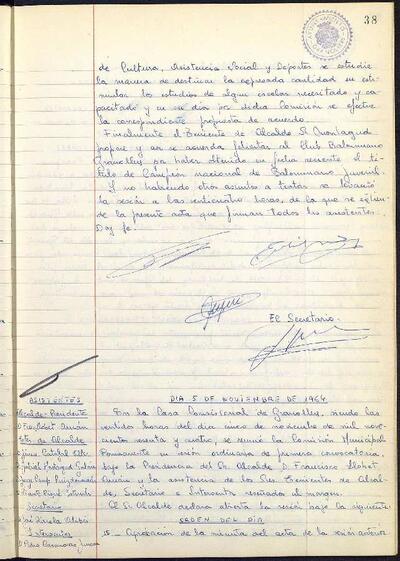 38
de Cultura, Asistencia Social y Deportes se estudie
la manera de destinar la expresada cantidad en esti-
mular los estudios de algun escolar necesitado y ca-
pacitado y en su dia por dicha Comisión se efectue
la correspondiente propuesta de acuerdo.
Finalmente el Teniente de Alcalde Sr Montagud
propone y asi se acuerda felicitar al Club Balonmano
Granollers por haber obtenido en fecha reciente el tí-
tulo de Campión nacional de Balonmano Juvenil.
Y no habiendo otros asuntos a tratar se levantó
la sesión a las veinticuatro horas, de la que se extien-
de la presente acta que firman todos los asistentes.
Doy fe.
El Secretario.
ASISTENTES
Alcalde-Presidente
Ttes de Alcalde
Secretario
Interventor
DIA 5 DE NOVIEMBRE DE 1964
En la Casa Consistorial de Granollers, siendo las
veintidos horas del dia cinco de noviembre de mil nove-
cientos sesenta y cuatro, se reunió la Comisión Municipal
Permanente en sesión ordinaria de primera convocatoria,
bajo la Presidencia del Sr. Alcalde D. Francisco Llobet
Arnán y la asistencia de los Sres. Tenientes de Alcal-
de, Secretario e Interventor reseñados al margen.
El Sr. Alcalde declara abierta la sesión bajo la siguiente
ORDEN DEL DIA
1º - Aprobación de la minuta del acta de la sesión anterior